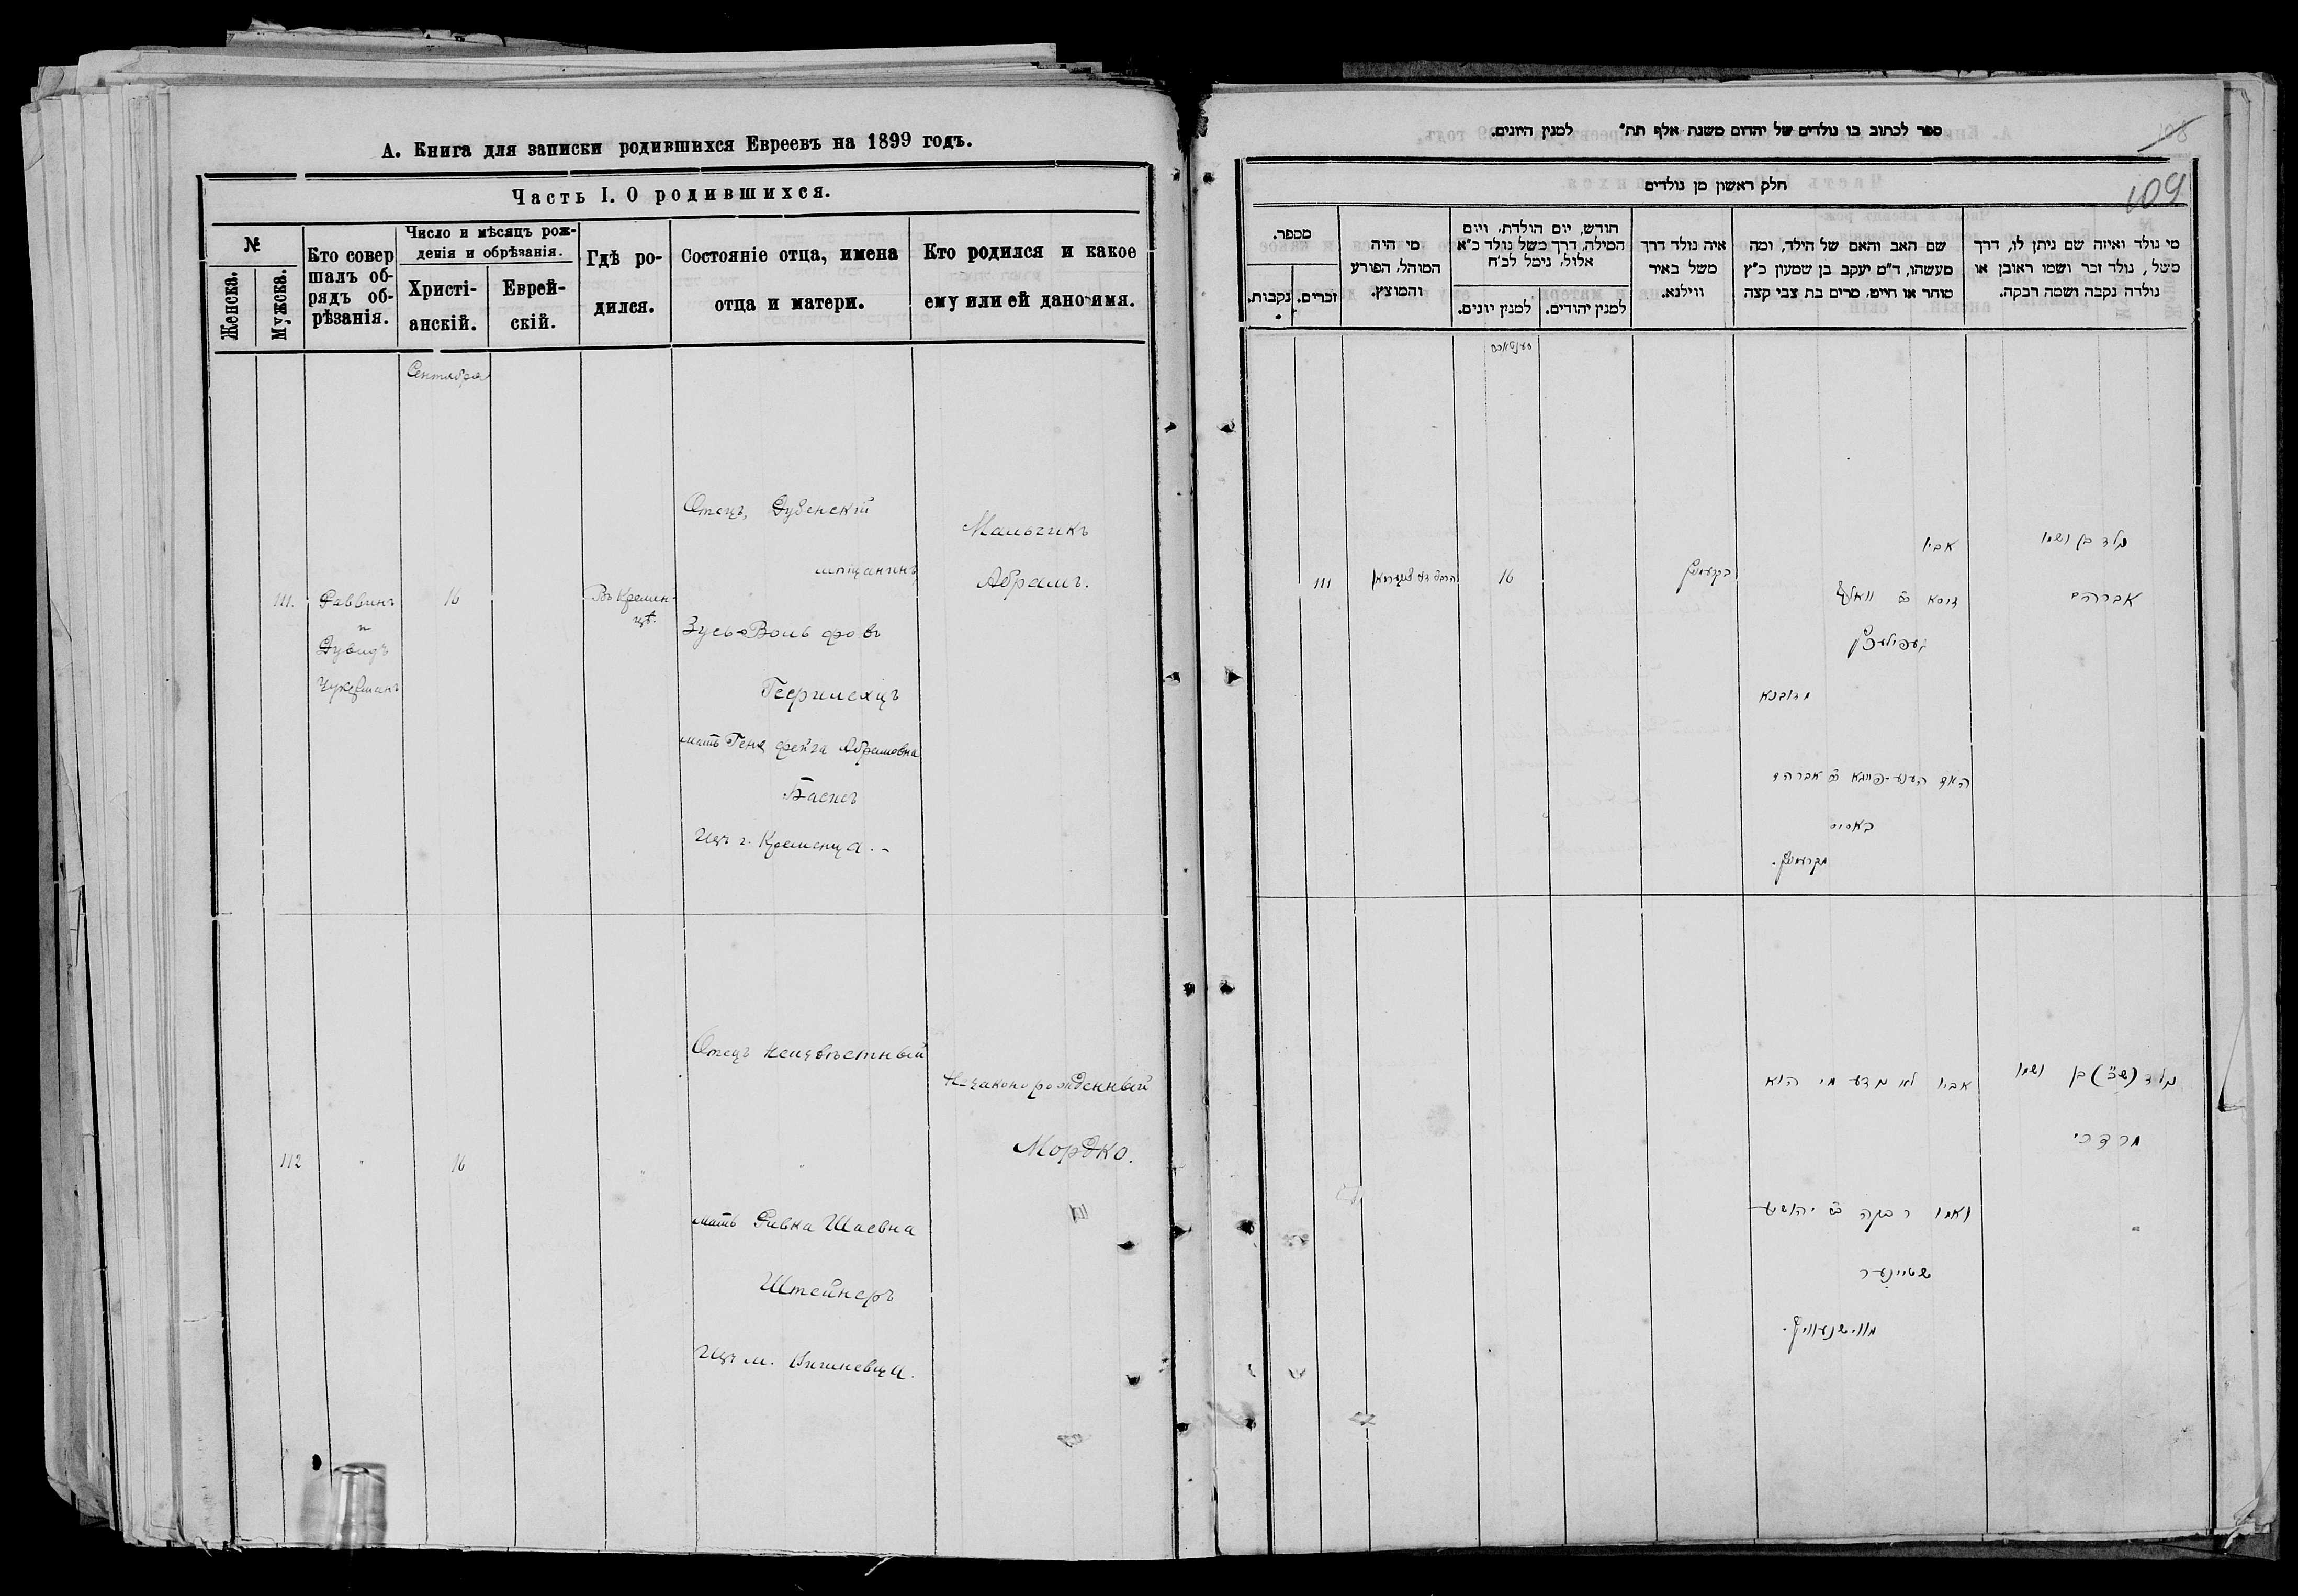 А. Книга для записки родившихся Евреевъ на 1899 годъ.
Часть I. О родившихся.
№
Женска.
Мужска.
Кто совер
шалъ об-
рядъ об-
рѣзанія.
Число и мѣсяцъ рож-
денія и обрѣзанія.
Христі-
анскій.
Еврей-
скій.
Гдѣ ро-
дился.
Состояніе отца, имена
отца и матери.
Кто родился и какое
ему или ей дано имя.
Сентября
111.
Раввинъ
и
Дувидъ
16
Въ Кремен-
цѣ.
Отецъ, Дубенскій
мѣщанинъ
Зусь-Вольфовъ
мать Геня Фейга Абрамовна
Басисъ
изъ г. Кременца.-
Мальчикъ
Абрамъ.
112
"
16
"
Отецъ неизвѣстный
"
мать Ривка Шаевна
Штейнеръ
изъ м. Вишневца.
Незаконорожденный
Мордко.
ספר לכתוב בו נולדים של יהדום משנת אלף תת״ למנין היונים.
108
109
חלק ראשון מן נולדים
מספר.
נקבות.
זכרים.
מי היה
המוהל, הפורע
והמוצץ.
חודש, יום הולדת, ויום
המילה, דרך משל נולד כ״א
אלול, נימל לכ״ח
למנין יונים.
למנין יהודים.
איה נולד דרך
משל באיר
ווילנא.
שם האב והאם של הילד, ומה
מעשהו, ד״מ יעקב בן שמעון כ״ץ
סוחר או חייט. מרים בת צבי קצה
מי נולד ואיזה שם ניתן לו, דרך
משל, נולד זכר ושמו ראובן או
נולדה נקבה ושמה רבקה.
111
16
נולד בן ושמו
אברהם
אביו
זוסא ב״ר וואלף
מדובנא
באסיס
מקרעמניץ.
נולד (ש״צ) בן ושמו
מרדכי
אביו לא נודע מי הוא
ואמו רבקה ב״ר יהושע
שטיינער
מווישנעוויץ.